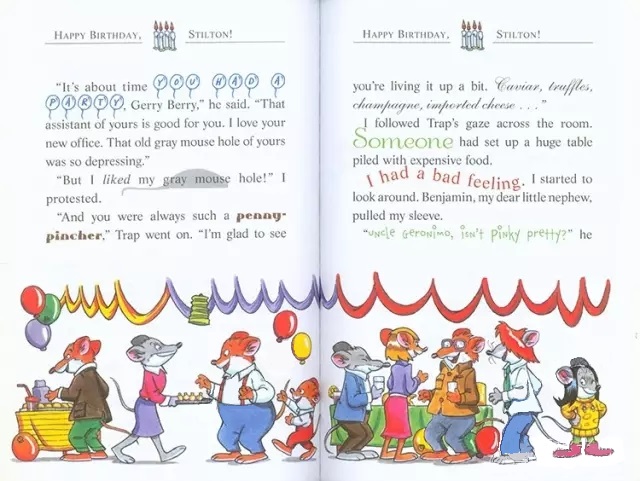 HAPPY BIRTHDAY, STILTON!
"It's about time YOU HAD A
PARTY, Gerry Berry," he said. "That
assistant of yours is good for you. I love your
new office. That old gray mouse hole of yours
was so depressing."
"But I liked my gray mouse hole!" I
protested.
"And you were always such a penny-
pincher," Trap went on. "I'm glad to see
HAPPY BIRTHDAY, STILTON!
you're living it up a bit. Caviar, truffles,
champagne, imported cheese . . ."
I followed Trap's gaze across the room.
Someone had set up a huge table
piled with expensive food.
I had a bad feeling. I started to
look around. Benjamin, my dear little nephew,
pulled my sleeve.
"Uncle Geronimo, isn't Pinky pretty?" he